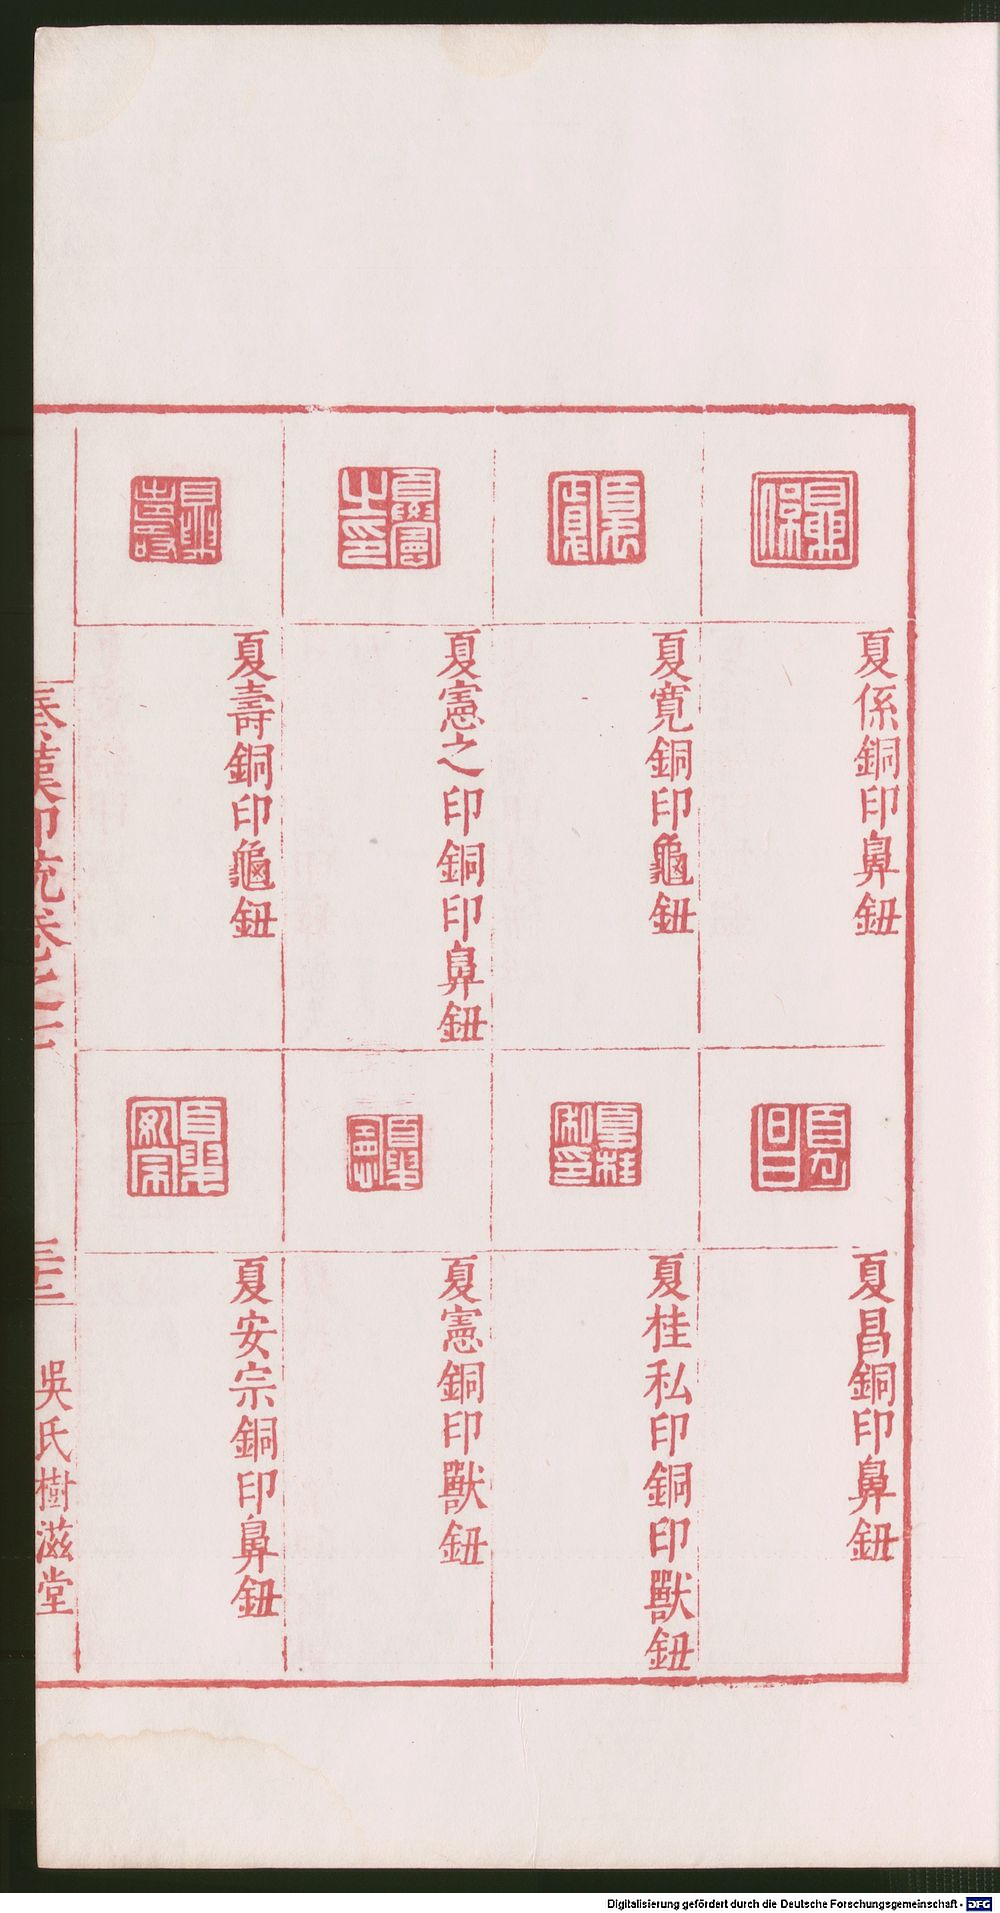 夏係銅印鼻鈕
夏寛銅印龜鈕
夏憲之印銅印鼻鈕
夏壽銅印龜鈕
夏昌銅印鼻鈕
夏桂私印銅印獸鈕
夏憲銅印獸鈕
夏安宗銅印鼻鈕
秦漢印統卷之七
三十二
吳氏樹滋堂
Digitalisierung gefördert durch die Deutsche Forschungsgemeinschaft - DFG